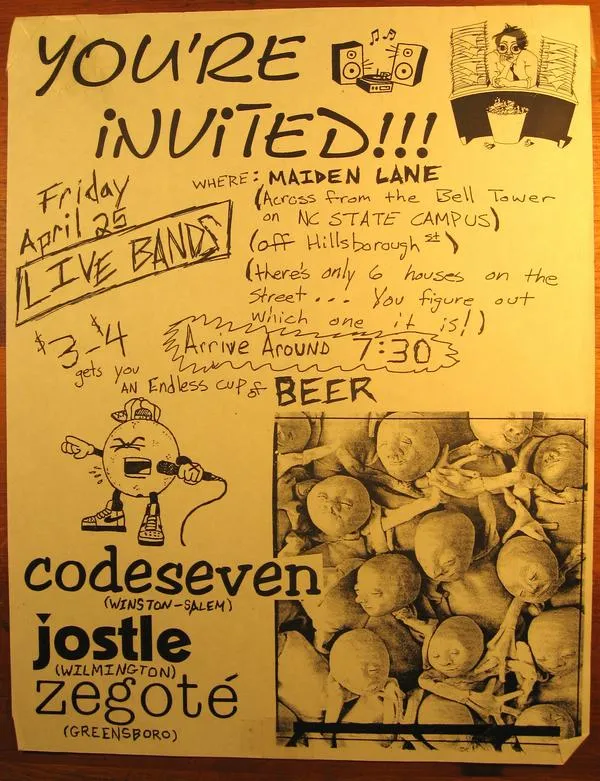 YOU'RE
iNViTED!!!
Friday
April 25
LIVE BANDS
WHERE: MAIDEN LANE
(Across from the Bell Tower
on NC STATE CAMPUS)
(off Hillsborough st)
(there's only 6 houses on the
street... You figure out
which one it is!)
$3-$4
gets you
AN Endless cup of BEER
Arrive Around 7:30
codeseven
(WINSTON-SALEM)
jostle
(WILMINGTON)
zegoté
(GREENSBORO)